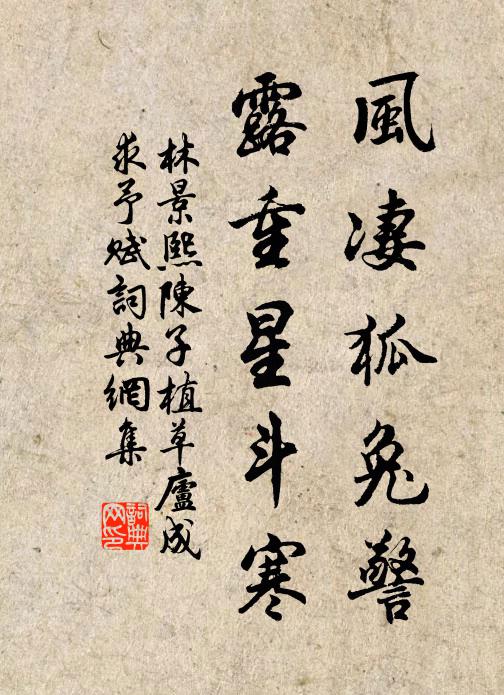 風凄狐兔警
露重星斗寒
林景熙陳子植草廬成
求予賦詞典網集
詞典
网印